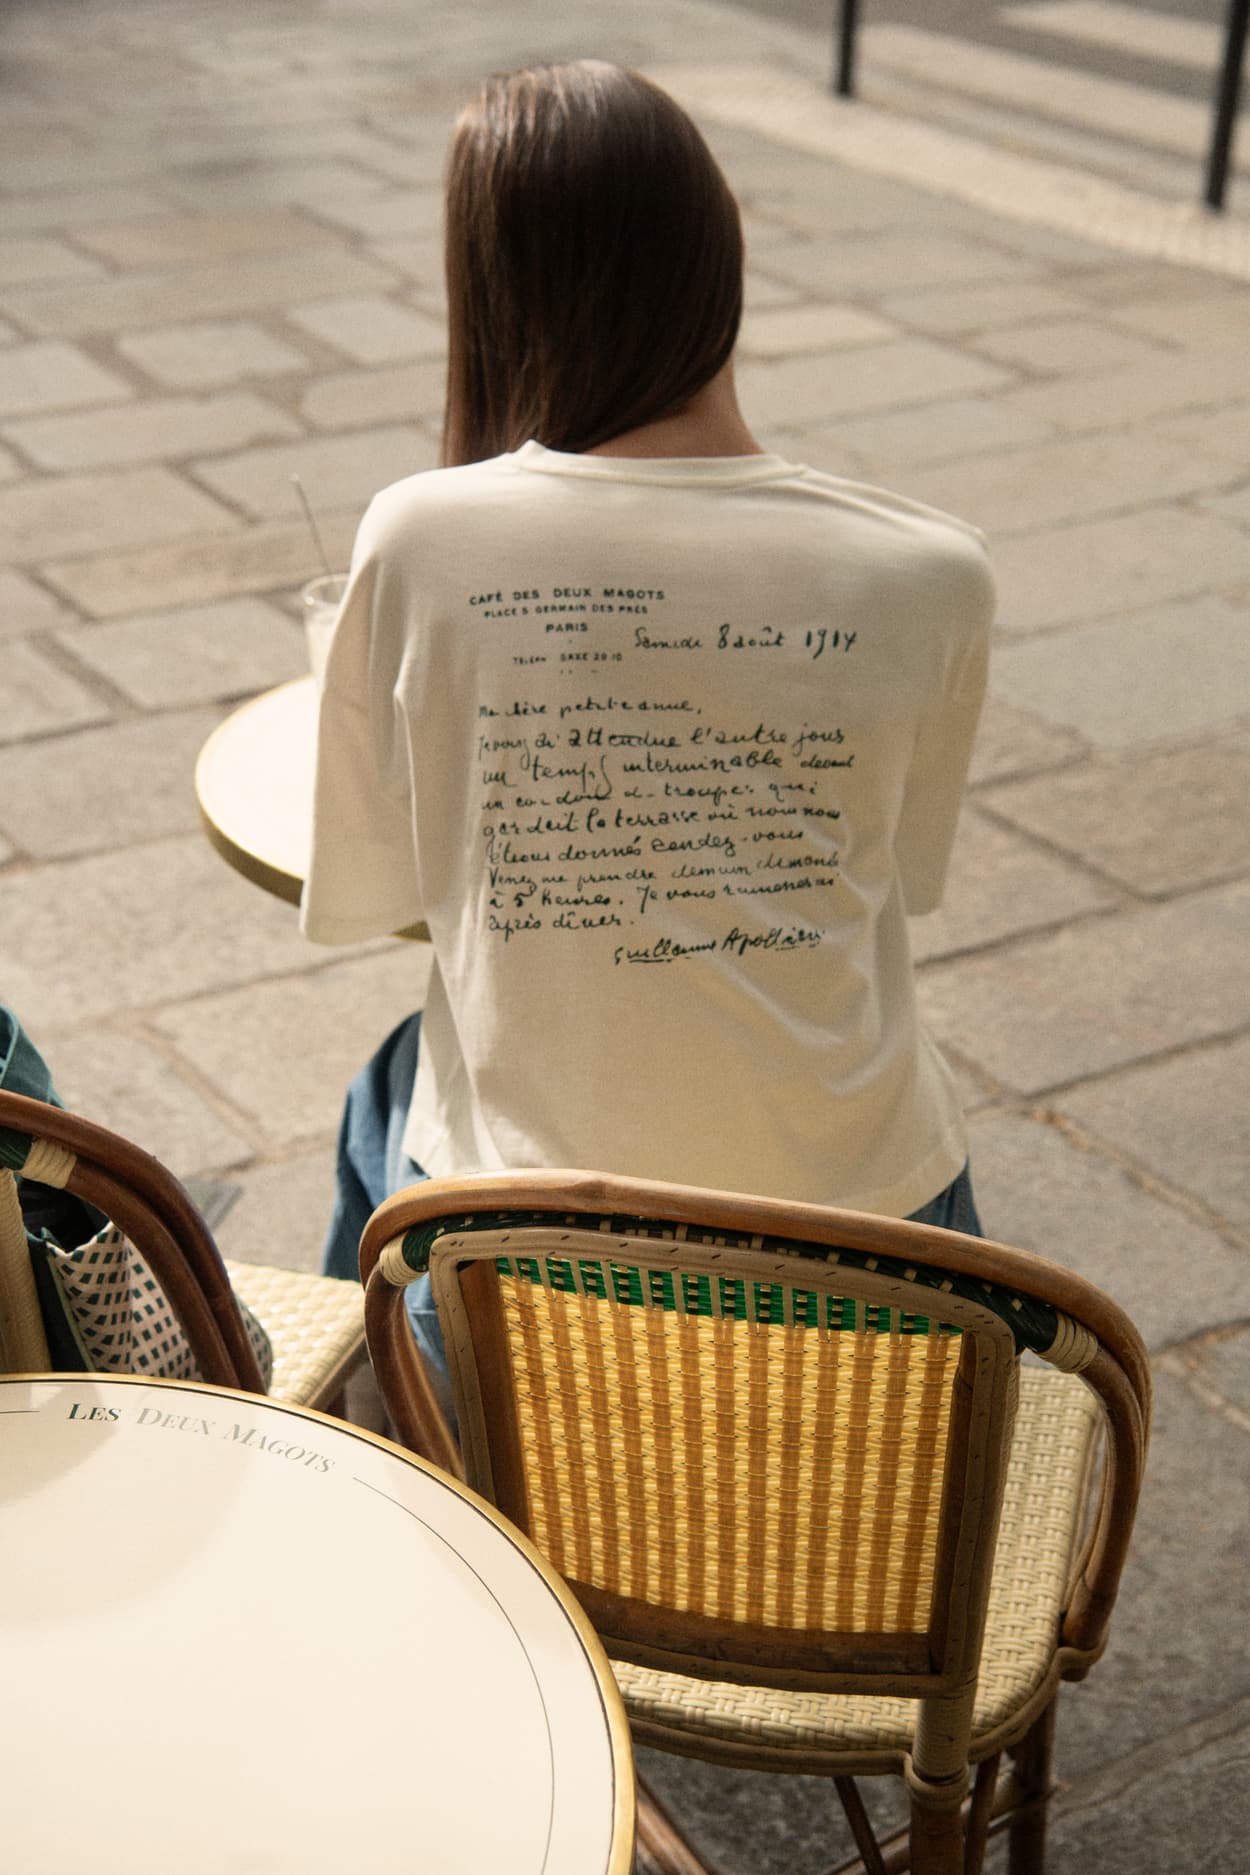 CAFÉ DES DEUX MAGOTS
PLACE S GERMAIN DES PRÉS
PARIS
TELEPH SAXE 29-10
Samedi 8 août 1914
Ma chère petite amie,
Je vous ai attendue l'autre jour
un temps interminable devant
un cordon de troupes qui
gardait la terrasse où nous nous
étions donnés rendez-vous
Venez me prendre demain dimanche
à 5 heures. Je vous ramènerai
après dîner.
Guillaume Apollinaire
LES DEUX MAGOTS